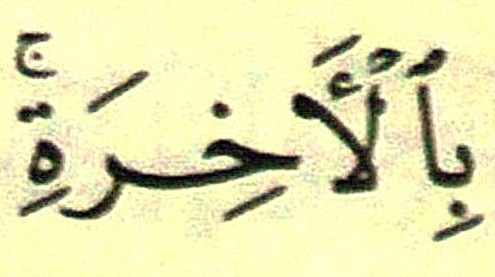 بِٱلْأَخِرَةِۚ